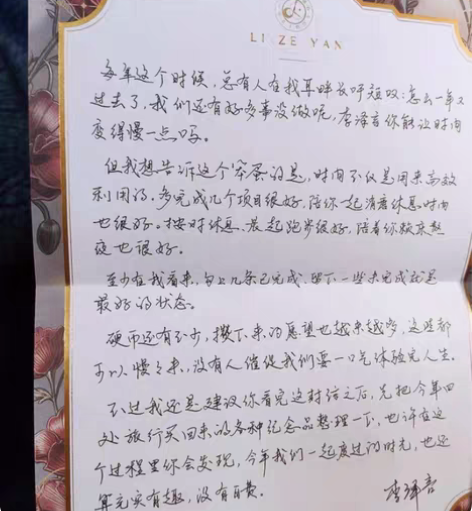 LI ZE YAN
每年这个时候，总有人在我耳畔长吁短叹：怎么一年又
过去了，我们还有好多事没做呢，李泽言你能让时间
变得慢一点吗。
但我想告诉这个笨蛋的是，时间不仅是用来高效
利用的。多完成几个项目很好，陪你一起消磨休息时间
也很好。按时休息、晨起跑步很好，陪着你放未熬
夜也很好。
至少在我看来，勾上几条已完成，留下一些未完成就是
最好的状态。
硬币还有不少，攒下来的愿望也越来越多，这些都
可以慢々来，没有人催促我们要一口气体验完人生。
不过我还是建议你看完这封信之后，先把今年四
处旅行买回来的各种纪念品整理一下，也许在这
个过程里你会发现，今年我们一起度过的时光，也还
算充实有趣，没有白费。
李泽言